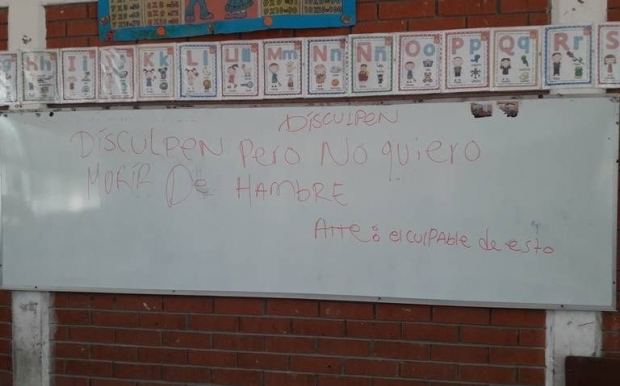 Hh Ii Kk Ll Mm Nn Ññ Oo Pp Qq Rr S
DISCULPEN
DISCULPEN Pero No quiero
MORIR De HAMBRE
Atte: el culpable de esto